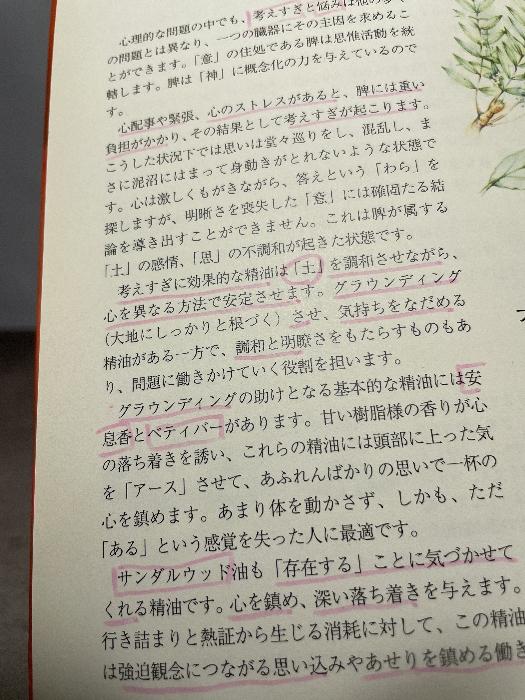 心理的な問題の中でも、考えすぎと悩みは他の多く
の問題とは異なり、一つの臓器にその主因を求めるこ
とができます。「意」の住処である脾は思惟活動を統
轄します。脾は「神」に概念化の力を与えているので
す。
心配事や緊張、心のストレスがあると、脾には重い
負担がかかり、その結果として考えすぎが起こります。
こうした状況下では思いは堂々巡りをし、混乱し、ま
さに泥沼にはまって身動きがとれないような状態で
す。心は激しくもがきながら、答えという「わら」を
探しますが、明晰さを喪失した「意」には確固たる結
論を導き出すことができません。これは脾が属する
「土」の感情、「思」の不調和が起きた状態です。
考えすぎに効果的な精油は「土」を調和させながら、
心を異なる方法で安定させます。グラウンディング
（大地にしっかりと根づく）させ、気持ちをなだめる
精油がある一方で、調和と明瞭さをもたらすものもあ
り、問題に働きかけていく役割を担います。
グラウンディングの助けとなる基本的な精油には安
息香とベティバーがあります。甘い樹脂様の香りが心
の落ち着きを誘い、これらの精油には頭部に上った気
を「アース」させて、あふれんばかりの思いで一杯の
心を鎮めます。あまり体を動かさず、しかも、ただ
「ある」という感覚を失った人に最適です。
サンダルウッド油も「存在する」ことに気づかせて
くれる精油です。心を鎮め、深い落ち着きを与えます。
行き詰まりと熱証から生じる消耗に対して、この精油
は強迫観念につながる思い込みやあせりを鎮める働き